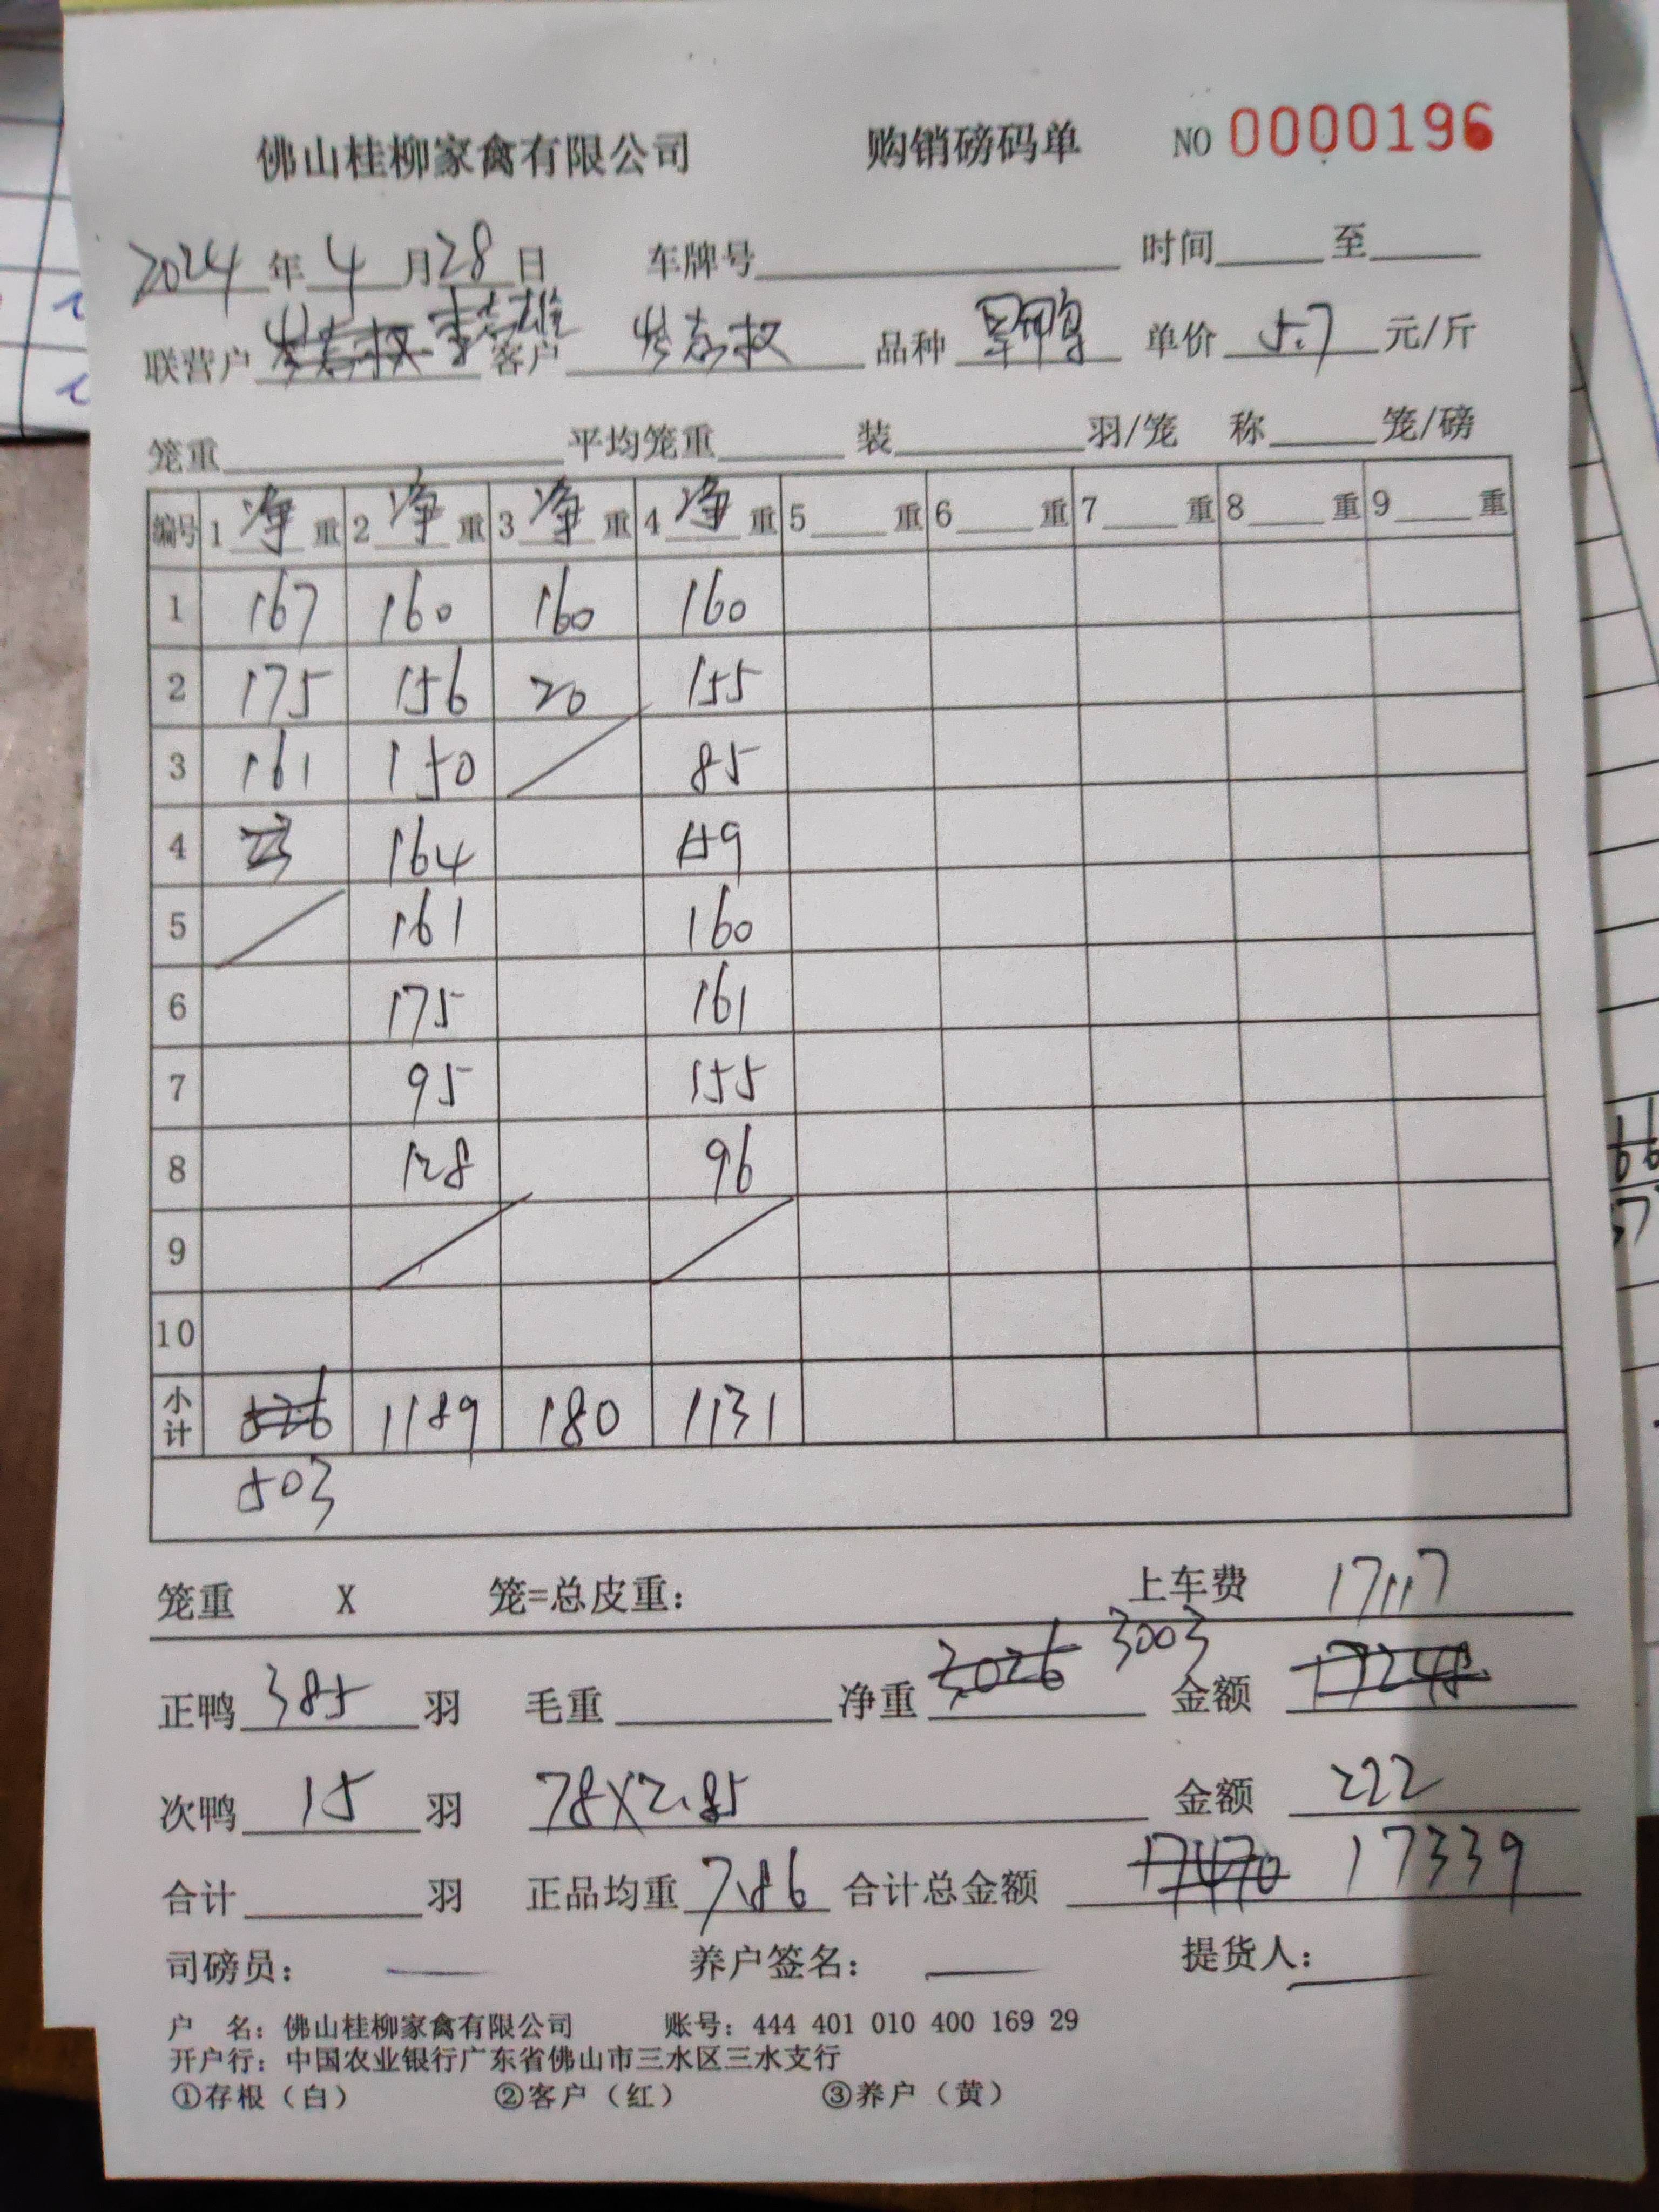 佛山桂柳家禽有限公司 购销磅码单 NO 0000196
2024年4月28日 车牌号 时间 至
联营户 客户 品种 单价 5.7 元/斤
笼重 平均笼重 装 羽/笼 称 笼/磅
编号 1 净 重 2 净 重 3 净 重 4 净 重 5 重 6 重 7 重 8 重 9 重
1 167 160 160 160
2 175 156 20 155
3 161 150 85
4 23 164 159
5 161 160
6 175 161
7 95 155
8 128 96
9
10
小计 526 1189 180 1131
503
笼重 X 笼=总皮重: 上车费 17117
正鸭 385 羽 毛重 净重 3026 3003 金额 17248
次鸭 15 羽 78X2.85 金额 222
合计 羽 正品均重 7.86 合计总金额 17470 17339
司磅员: 养户签名: 提货人:
户 名: 佛山桂柳家禽有限公司 账号: 444 401 010 400 169 29
开户行: 中国农业银行广东省佛山市三水区三水支行
①存根（白） ②客户（红） ③养户（黄）